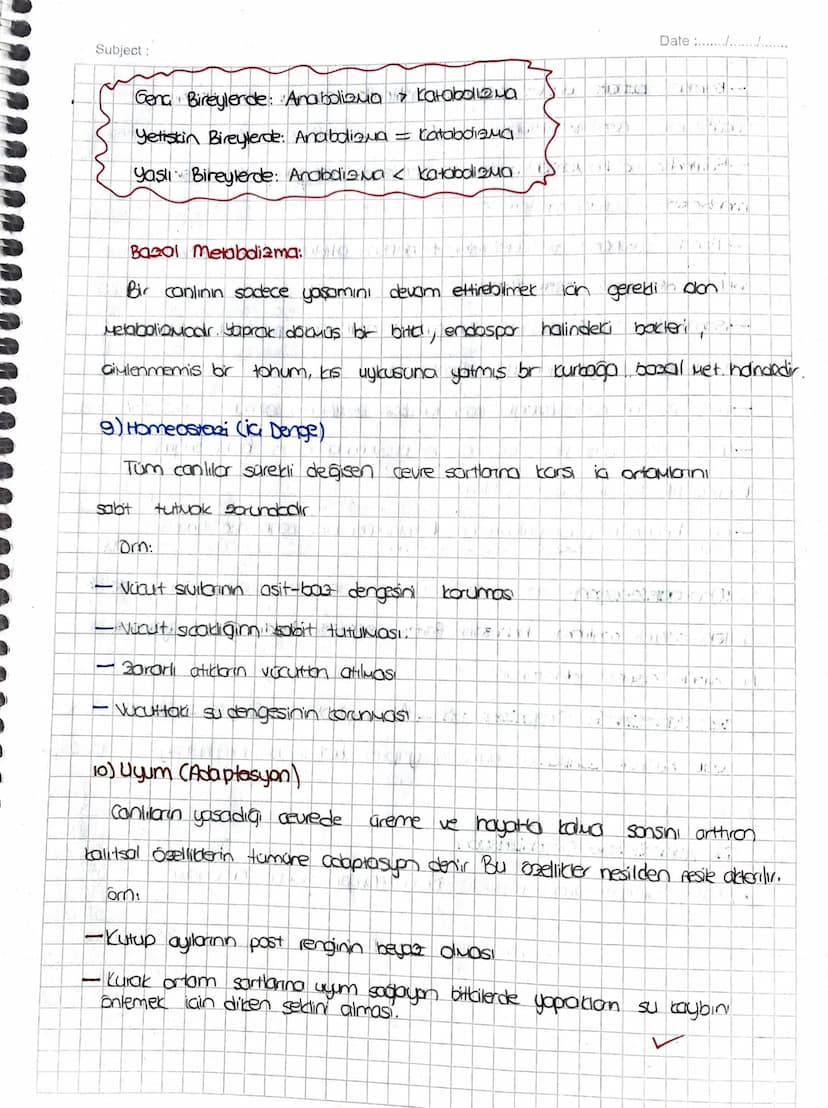 Subject :
Date :....../......./.......
Genç Bireylerde: Anabolizma > Katabolizma
Yetişkin Bireylerde: Anabolizma = Katabolizma
Yaslı Bireylerde: Anabolizma < Katabolizma.
Bazal Metabolizma:
Bir canlının sadece yaşamını devam ettirebilmek için gerekli olan
Metabolizmadır. Yaprak dökmüş bir bitki, endospor halindeki bakteri,
Çimlenmemis bir tohum, kıs uykusuna yatmıs bir kurbağa bazal met. halindedir.
9) Homeostazi (iç Denge)
Tüm canlılar sürekli değişen çevre sartlarına karsı iç ortamlarını
sabit tutmak zorundadır
Örn:
- Vücut sıvılarının asit-baz dengesini koruması
- Vücut sıcaklığının sabit tutulması.
- Zararlı atıkların vücuttan atılması
- Vücuttaki su dengesinin korunması.
10) Uyum (Adaptasyon)
Canlıların yasadığı çevrede üreme ve hayatta kalma sansını arttıran
kalıtsal özelliklerin tümüne adaptasyon denir Bu özellikler nesilden nesile aktarılır.
örn:
- Kutup ayılarının post renginin beyaz olması
- Kurak ortam sartlarına uyum sağlayan bitkilerde yapraktan su kaybını
önlemek için diken seklini alması.